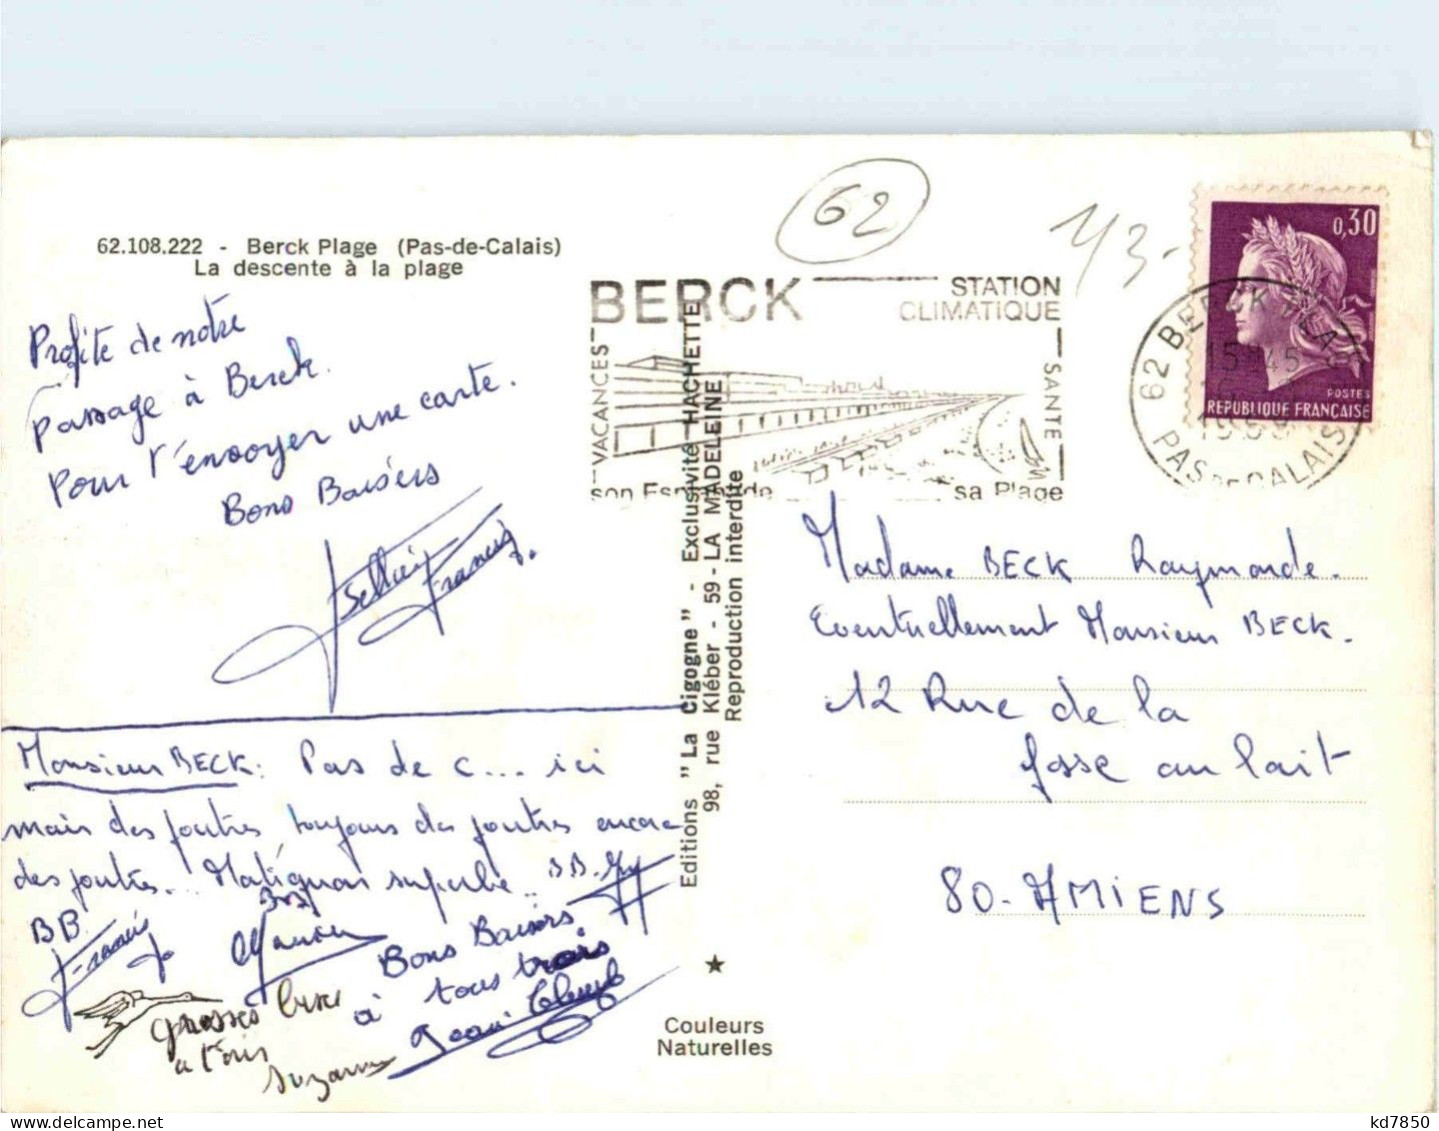 62
1/3-
62.108.222 - Berck Plage (Pas-de-Calais)
La descente à la plage
Profite de notre
passage à Berck.
pour t'envoyer une carte.
Bons Baisers
Francis.
Monsieur BECK: Pas de c... ici
mais des joutes toujours des joutes encore
des joutes... Matignon superbe.. BB. Guy
BB
Francis
BB
Bons Baisers
à tous trois
Jean
grosses bises
à tous
Suzanne
BERCK
STATION
CLIMATIQUE
VACANCES
SANTÉ
son Esplanade
sa Plage
Editions "La Cigogne" - Exclusivité HACHETTE
98, rue Kléber - 59 - LA MADELEINE
Reproduction interdite
Couleurs
Naturelles
0,30
POSTES
REPUBLIQUE FRANÇAISE
62 BERCK PLAGE
15 H 45
1969
PAS DE CALAIS
Madame BECK Raymonde.
Eventuellement Monsieur BECK.
12 Rue de la
fosse au lait
80 - AMIENS
kd7850